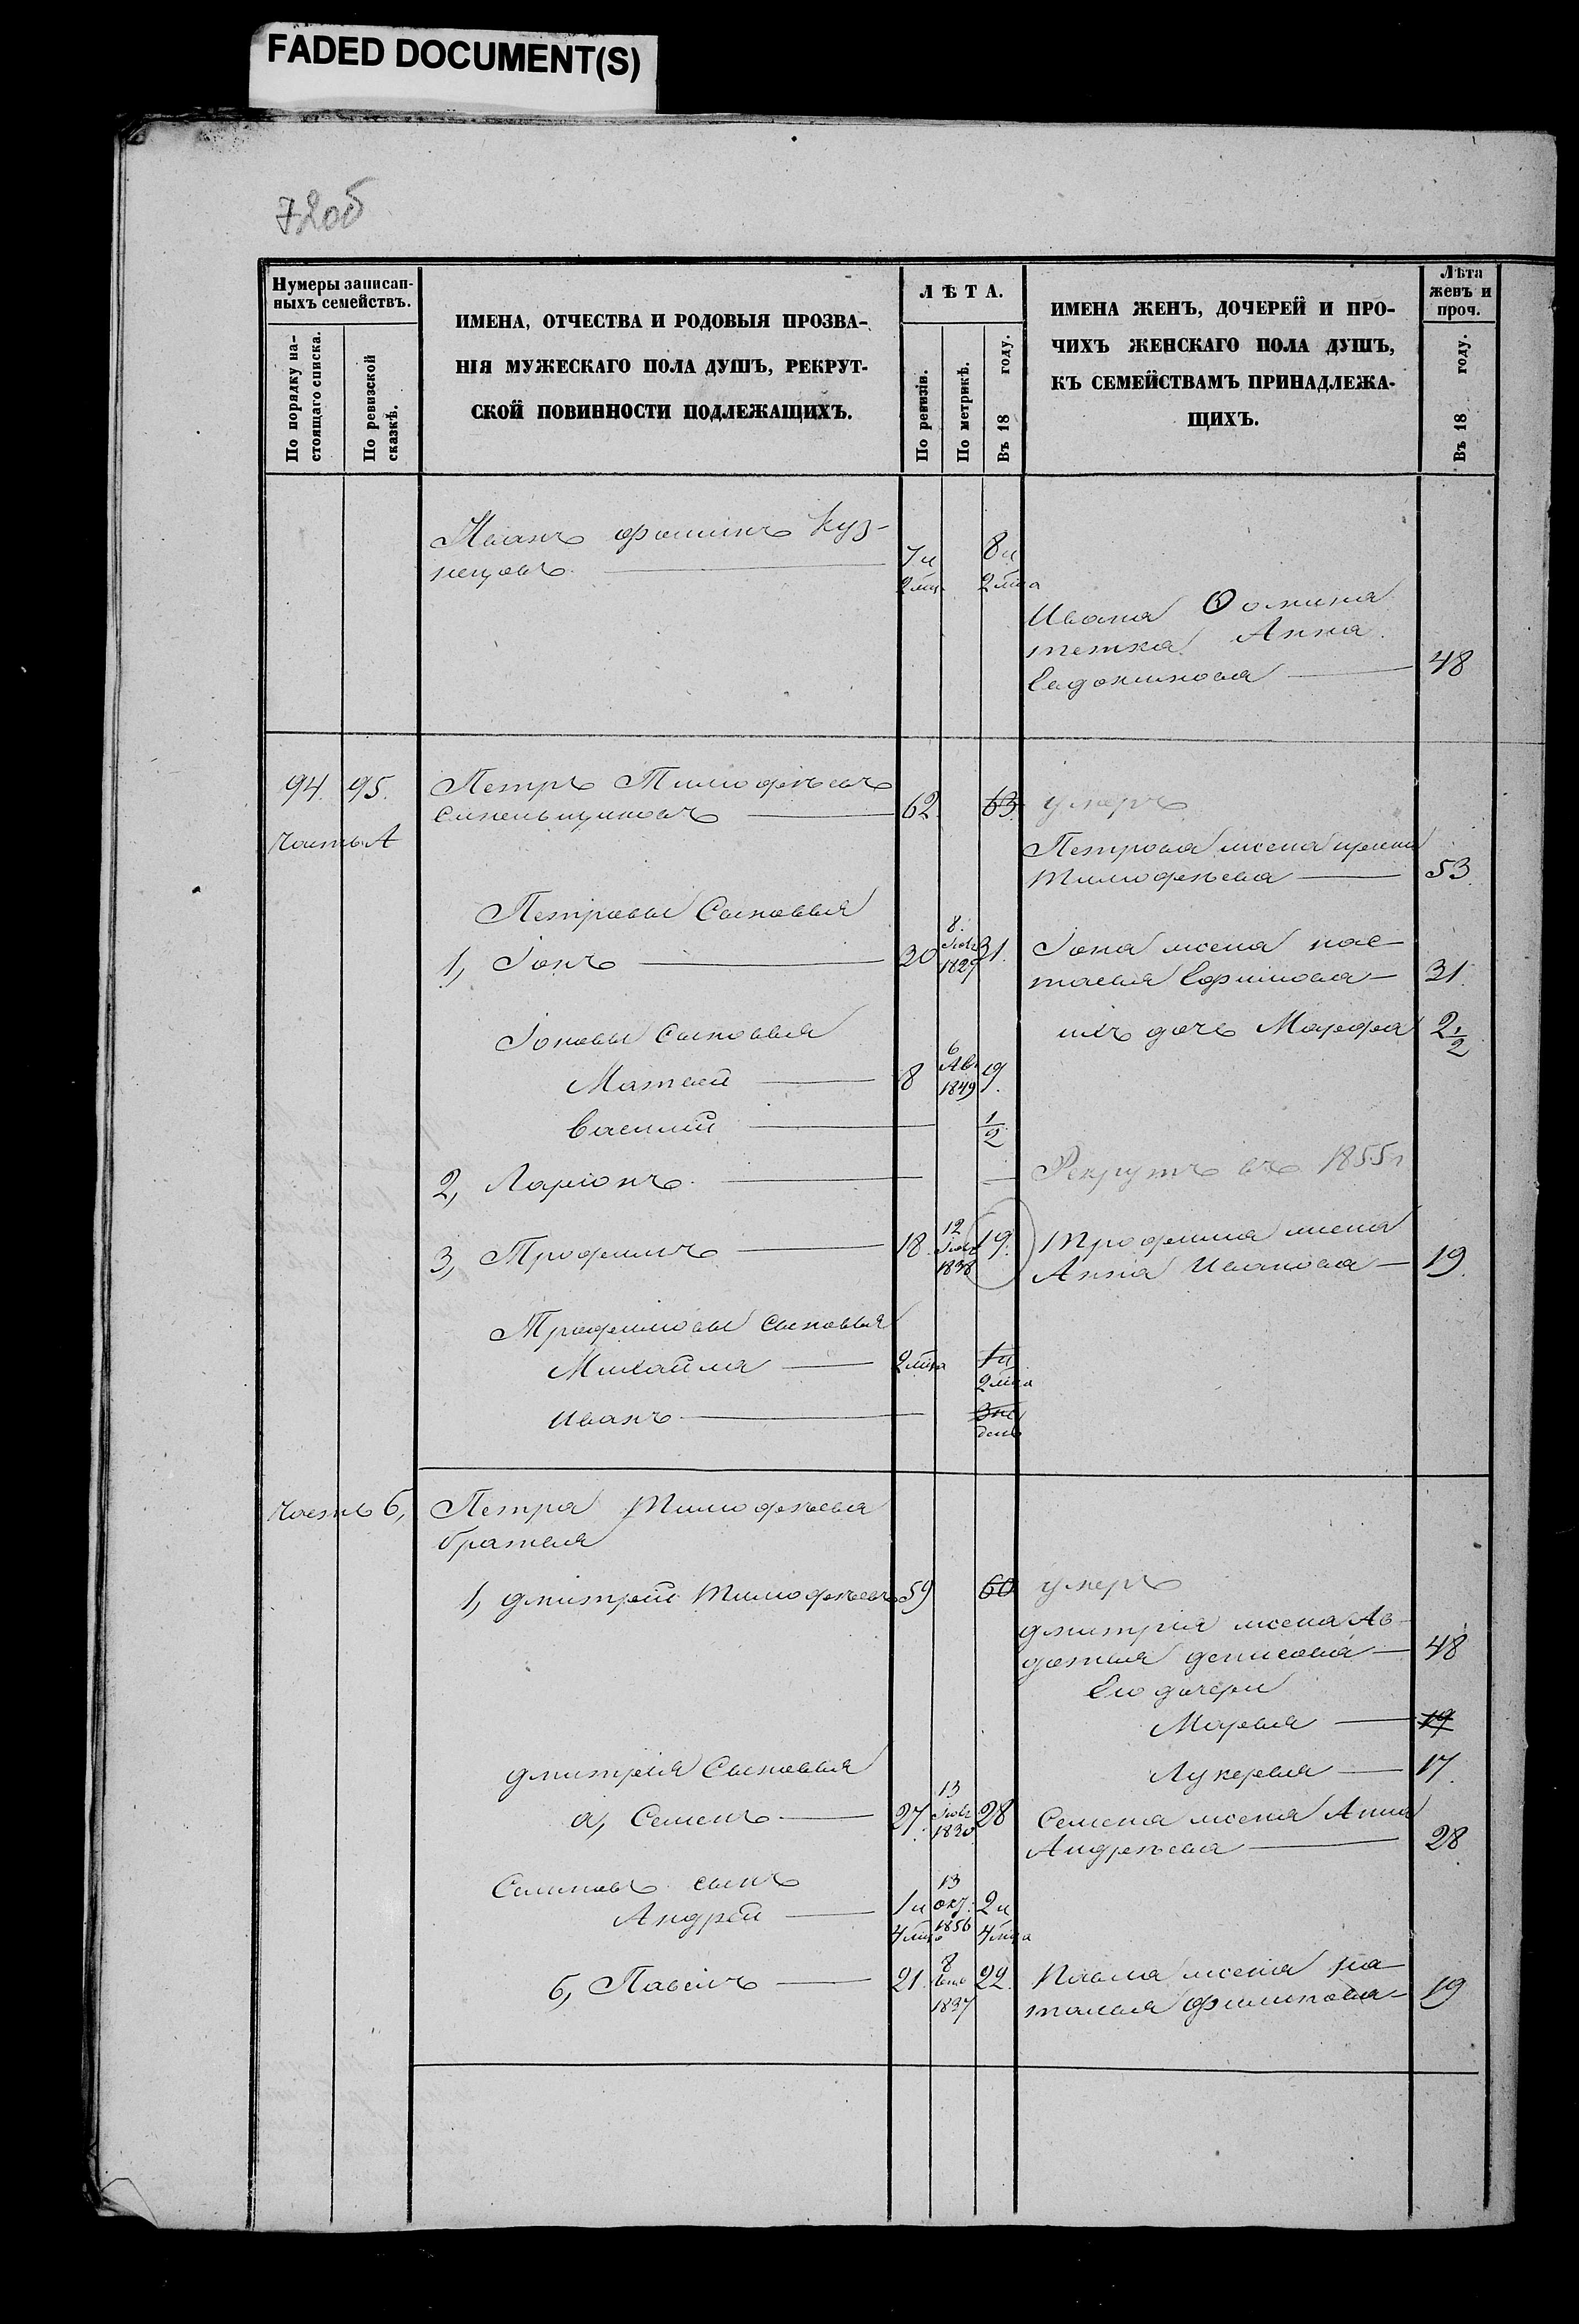 FADED DOCUMENT(S)
72об
Нумеры записан-
ныхъ семействъ.
По порядку на-
стоящаго списка.
По ревизской
сказкѣ.
ИМЕНА, ОТЧЕСТВА И РОДОВЫЯ ПРОЗВА-
НІЯ МУЖЕСКАГО ПОЛА ДУШЪ, РЕКРУТ-
СКОЙ ПОВИННОСТИ ПОДЛЕЖАЩИХЪ.
ЛѢТА.
По ревизіи.
По метрикѣ.
Въ 18 году.
ИМЕНА ЖЕНЪ, ДОЧЕРЕЙ И ПРО-
ЧИХЪ ЖЕНСКАГО ПОЛА ДУШЪ,
КЪ СЕМЕЙСТВАМЪ ПРИНАДЛЕЖА-
ЩИХЪ.
Лѣта
женъ и
проч.
Въ 18 году.
Иванъ фоминъ Куз-
нецовъ 7 и 8 и
2 мца 2 мца
Ивана Ѳомина
тетка Анна
Евдокимова 48
94. 95. Петръ Тимофѣевъ
Синельщиковъ 62. 63. умеръ
часть А
Петрова жена
Тимофѣева 53
Петровы Сыновья
1, Іонъ 30 8 1829 31. Іона жена нас-
тасья Ефимова 31.
Іоновы Сыновья ихъ дочь Марфа 2 1/2
Матвей 8 6 Авг 1849 9.
Василий 1/2
2, Ларіонъ Рекрутъ въ 1855 г
3, Трофимъ 18. 12 1838 19. Трофима жена
Анна Иванова 19.
Трофимовы сыновья
Михайла 2 мца 1 и
2 мца
Иванъ
часть б, Петра Тимофѣева
братья
1, дмитрей Тимофѣевъ 59 60 умеръ
дмитрія жена Ав-
дотья денисова 48
Его дочери
Марья 19
дмитрія Сыновья Лукерья 17.
а, Семенъ 27. 13 1830 28 Семена жена Анна
Андреѣва 28.
Семеновъ сынъ
Андрей 1 и 13 окт. 2 и
4 мца 1856 4 мца
б, Павелъ 21. 8 1837 22. Павла жена на-
талья филипова 19